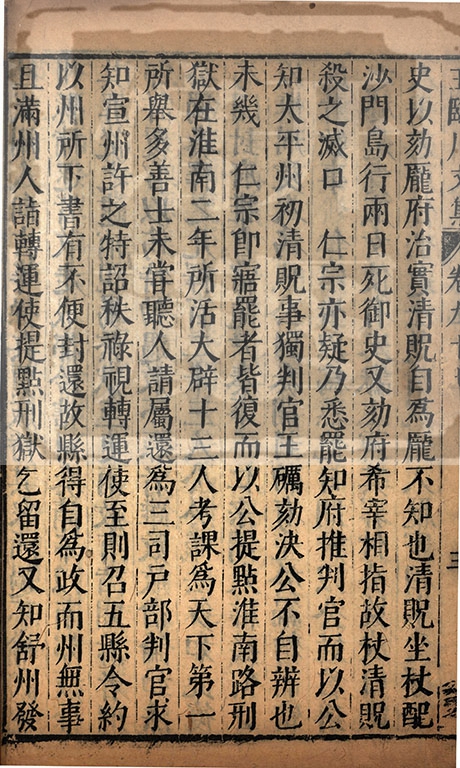 王臨川文集 卷九十 三
史以劾龐府治實清貺自爲龐不知也清貺坐杖配
沙門島行兩日死御史又劾府希宰相指故杖清貺
殺之滅口 仁宗亦疑乃悉罷知府推判官而以公
知太平州初清貺事獨判官王礪劾決公不自辨也
未幾 仁宗卽寤罷者皆復而以公提點淮南路刑
獄在淮南二年所活大辟十三人考課爲天下第一
所舉多善士未甞聽人請屬還爲三司戶部判官求
知宣州許之特詔秩祿視轉運使至則召五縣令約
以州所下書有不便封還故縣得自爲政而州無事
且滿州人詣轉運使提點刑獄乞留還又知舒州發